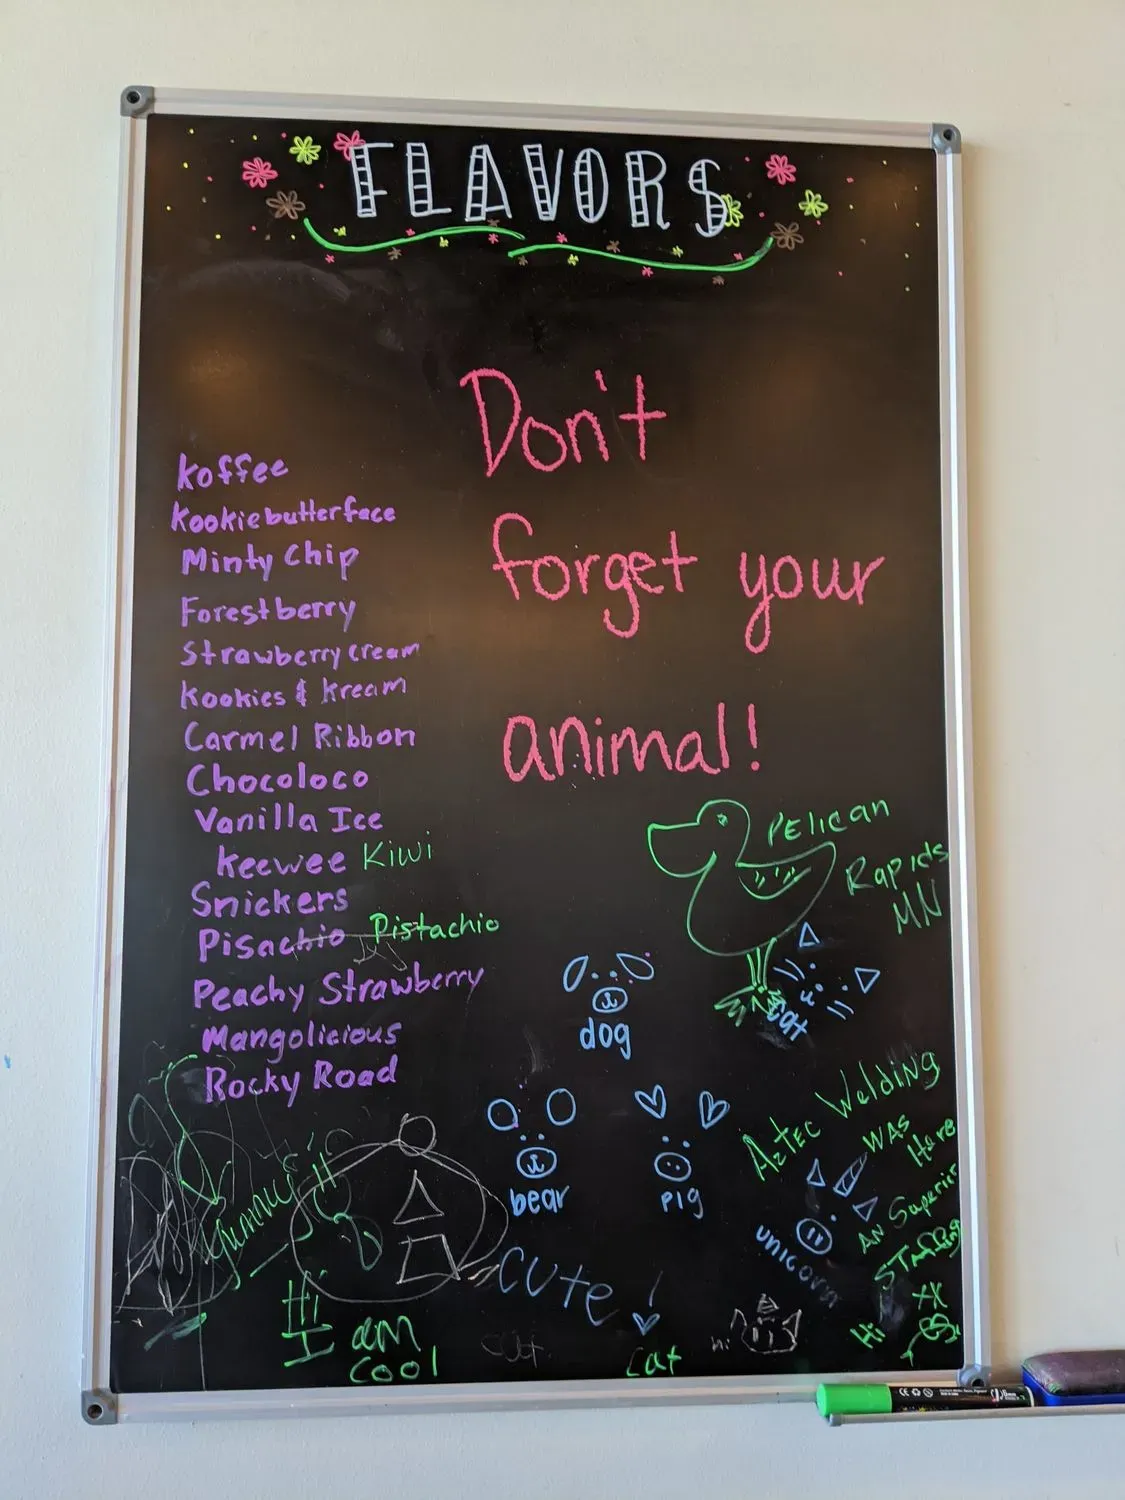 FLAVORS
Don't
forget your
animal!
Koffee
Kookiebutterface
Minty Chip
Forestberry
Strawberry cream
Kookies & Kream
Carmel Ribbon
Chocoloco
Vanilla Ice
Keewee Kiwi
Snickers
Pisachio Pistachio
Peachy Strawberry
Mangolicious
Rocky Road
PElican
Rapids
MN
dog
cat
bear
pig
unicorn
Aztec Welding
WAS
Here
AN Superior
STAffing
xx
Hi
CUTe!
Hi
I am
cool
cat
cat
hi